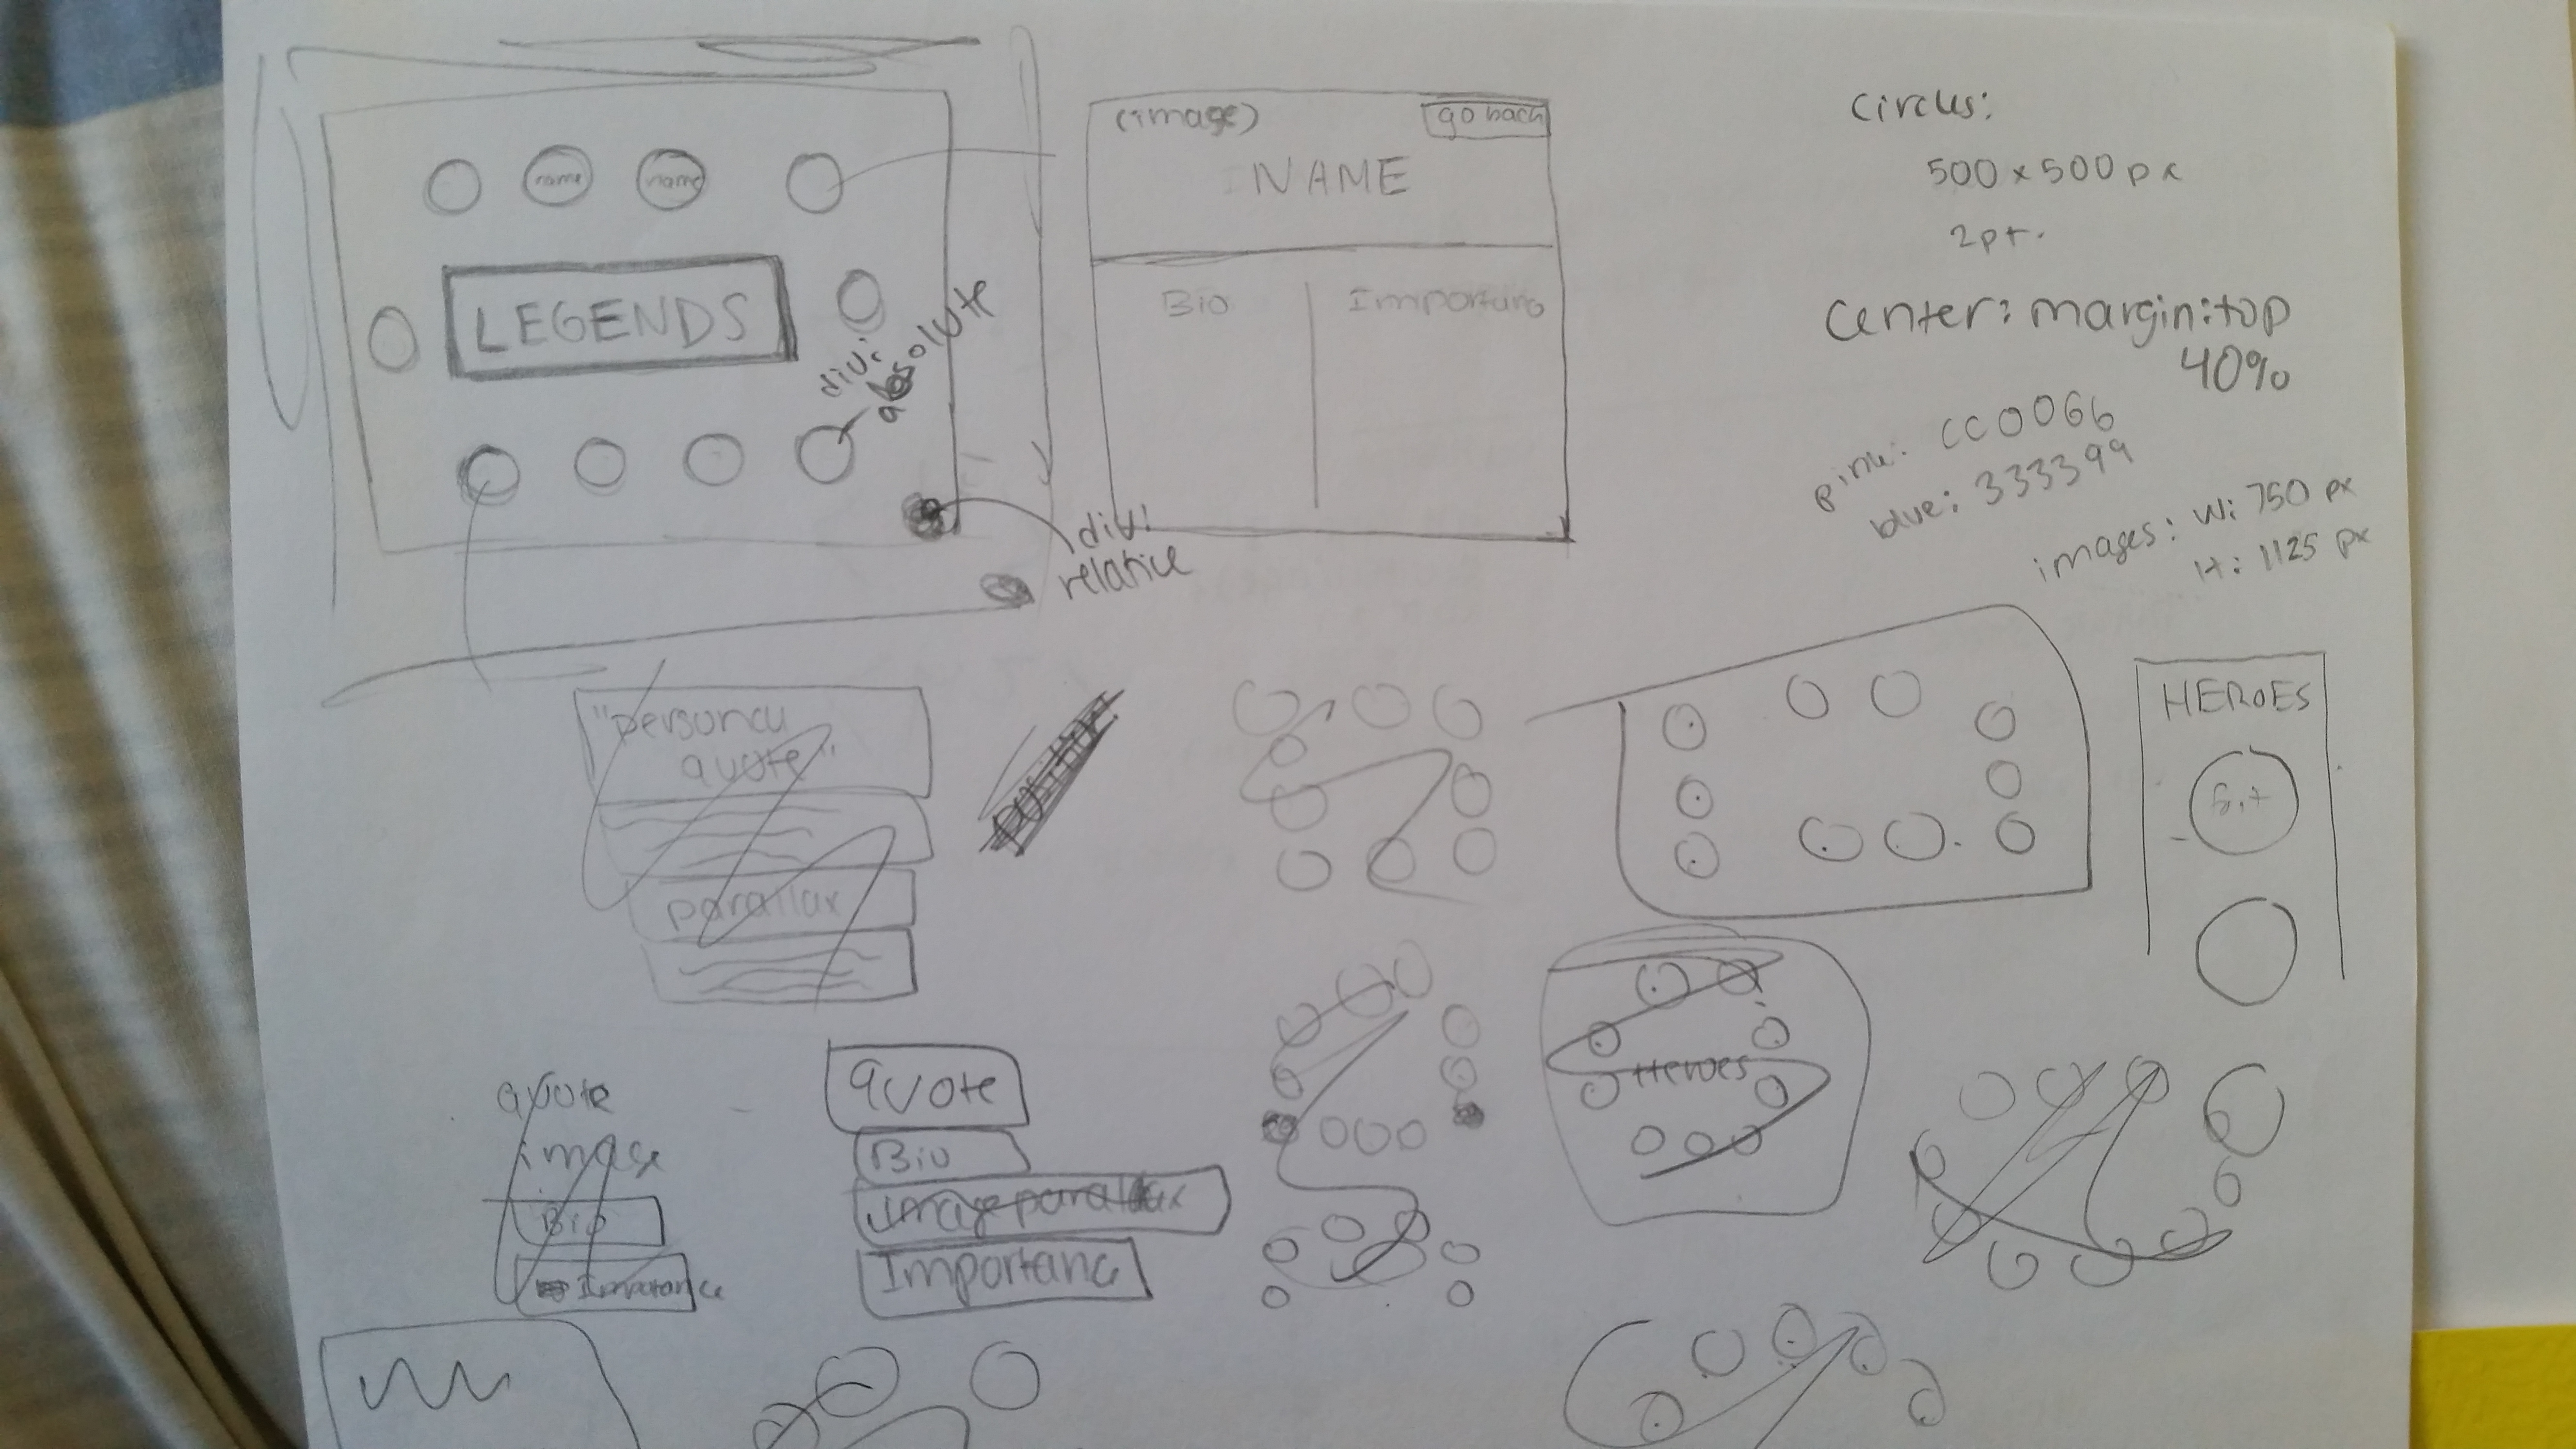 name
name
LEGENDS
div:
absolute
div:
relative
(image)
go back
NAME
Bio
Circles:
500 x 500 px
2pt.
Center: margin:top
40%
pink: CC0066
blue: 333399
images: W: 750 px
H: 1125 px
"personal
quote"
parallax
HEROES
Heroes
quote
image
Bio
Importance
quote
Bio
image parallax
Importanc